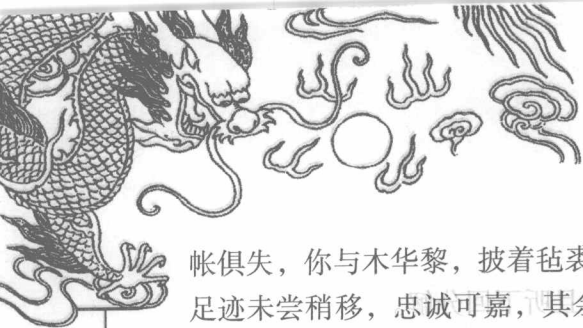 帐俱失，你与木华黎，披着毡裘
足迹未尝稍移，忠诚可嘉，其